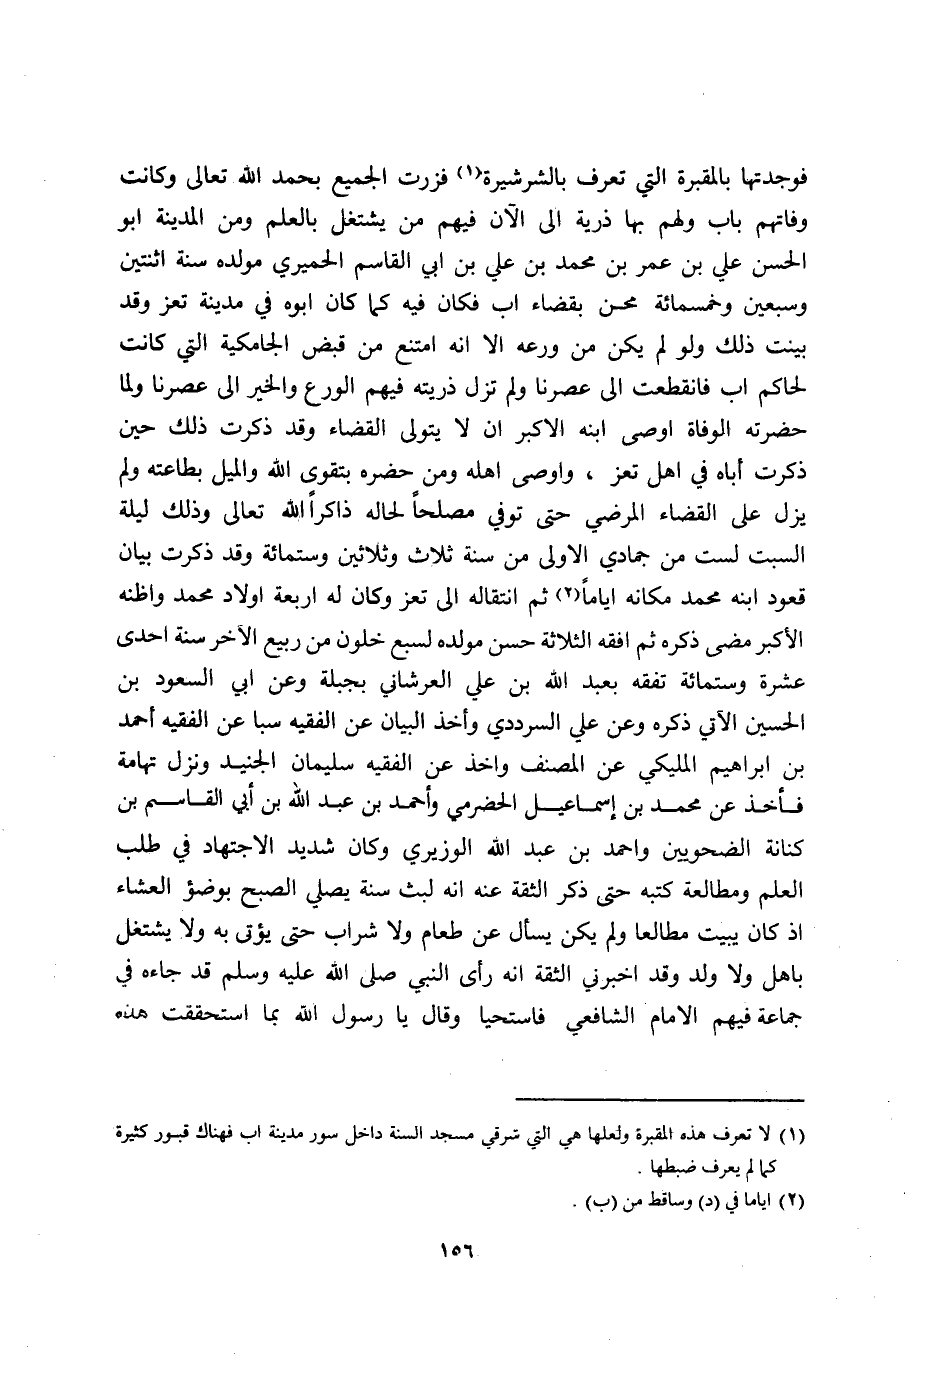 فوجدتها بالمقبرة التي تعرف بالشرشيرة(١) فزرت الجميع بحمد الله تعالى وكانت
وفاتهم باب ولهم بها ذرية الى الآن فيهم من يشتغل بالعلم ومن المدينة ابو
الحسن علي بن عمر بن محمد بن علي بن ابي القاسم الحميري مولده سنة اثنتين
وسبعين وخمسمائة محن بقضاء اب فكان فيه كما كان ابوه في مدينة تعز وقد
بينت ذلك ولو لم يكن من ورعه الا انه امتنع من قبض الجامكية التي كانت
لحاكم اب فانقطعت الى عصرنا ولم تزل ذريته فيهم الورع والخير الى عصرنا ولما
حضرته الوفاة اوصى ابنه الاكبر ان لا يتولى القضاء وقد ذكرت ذلك حين
ذكرت أباه في اهل تعز ، واوصى اهله ومن حضره بتقوى الله والميل بطاعته ولم
يزل على القضاء المرضي حتى توفي مصلحاً لحاله ذاكراً الله تعالى وذلك ليلة
السبت لست من جمادي الاولى من سنة ثلاث وثلاثين وستمائة وقد ذكرت بيان
قعود ابنه محمد مكانه اياماً(٢) ثم انتقاله الى تعز وكان له اربعة اولاد محمد واظنه
الأكبر مضى ذكره ثم افقه الثلاثة حسن مولده لسبع خلون من ربيع الآخر سنة احدى
عشرة وستمائة تفقه بعبد الله بن علي العرشاني بجبلة وعن ابي السعود بن
الحسين الآتي ذكره وعن علي السرددي وأخذ البيان عن الفقيه سبا عن الفقيه أحمد
بن ابراهيم المليكي عن المصنف واخذ عن الفقيه سليمان الجنيد ونزل تهامة
فأخذ عن محمد بن إسماعيل الحضرمي وأحمد بن عبد الله بن أبي القاسم بن
كنانة الضحويين واحمد بن عبد الله الوزيري وكان شديد الاجتهاد في طلب
العلم ومطالعة كتبه حتى ذكر الثقة عنه انه لبث سنة يصلي الصبح بوضؤ العشاء
اذ كان يبيت مطالعا ولم يكن يسأل عن طعام ولا شراب حتى يؤتى به ولا يشتغل
باهل ولا ولد وقد اخبرني الثقة انه رأى النبي صلى الله عليه وسلم قد جاءه في
جماعة فيهم الامام الشافعي فاستحيا وقال يا رسول الله بما استحققت هذه
(١) لا تعرف هذه المقبرة ولعلها هي التي شرقي مسجد السنة داخل سور مدينة اب فهناك قبور كثيرة
كما لم يعرف ضبطها .
(٢) اياما في (د) وساقط من (ب) .
١٥٦